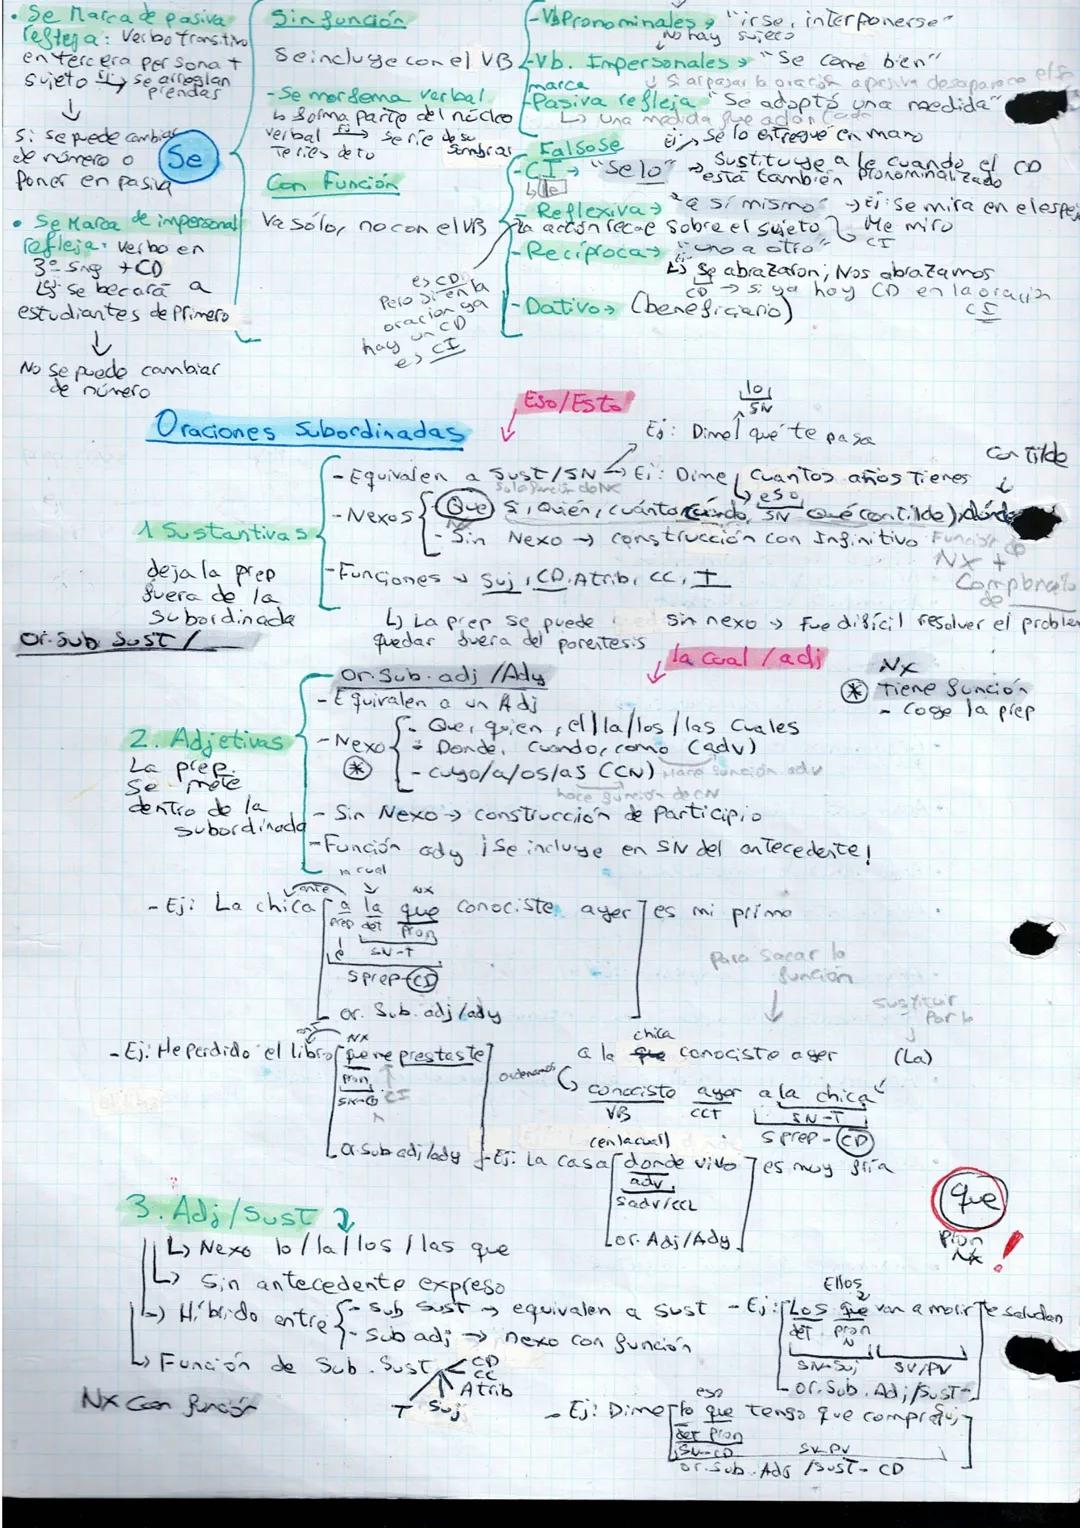 • Se Marca de pasiva
refleja: Verbo transitivo
en tercera persona +
sujeto Ej → se arreglan
prendas
↓
Sí se puede cambiar
de número o
poner en pasiva
• Se Marca de impersonal
refleja: verbo en
3ª sng + CD
Ej: se becará a
estudiantes de primero
↓
No se puede cambiar
de número
Se
Sin función
Se incluye con el VB
- Se morfema verbal
↳ forma parte del núcleo
verbal Ej → Se ríe de su
Te ríes de tu sombra
Con Función
Va sólo, no con el VB
es CD
Pero si en la
oración ya
hay un CD
es CI
- Vb Pronominales → "irse, interponerse"
No hay sujeto
- Vb. Impersonales → "Se come bien"
marca
↓ Si al pasar la oración a pasiva desaparece el se
- Pasiva refleja "Se adoptó una medida"
↳ una medida fue adoptada
Falso se Ej → Se lo entregué en mano
- CI → "Se lo" → Sustituye a le cuando el CD
está también pronominalizado
↳ le
- Reflexiva → "a sí mismo" → Ej: Se mira en el espejo
La acción recae sobre el sujeto Me miro
CI
- Recíproca → "uno a otro"
↳ Se abrazaron; Nos abrazamos
CD → si ya hoy CD en la oración
CI
- Dativo → (beneficiario)
Oraciones Subordinadas
Eso/Esto
lo
SN
Ej: Dime qué te pasa
1 Sustantivas
deja la prep
fuera de la
subordinada
- Equivalen a Sust/SN → Ej: Dime cuantos años tienes
eso
SN
Con tilde
Solo función de NX
- Nexos
- Que, Si, Quién, cuánto, cuándo, (qué con tilde), dónde
- Sin Nexo → construcción con Infinitivo
Función de
NX +
Complemento
de
- Funciones → Suj, CD, Atrib, CC, T
↳ La prep se puede
quedar fuera del paréntesis
Sin nexo → Fue difícil resolver el problema
Or. Sub Sust /
la cual / adj
NX
* Tiene función
- Coge la prep
2. Adjetivas
La prep.
se mete
dentro de la
subordinada
Or. Sub. adj /Ady
- Equivalen a un Adj
- Nexo
*
- Que, quien, el/la/los/las cuales
- Donde, cuando, como (adv)
- cuyo/a/os/as (CN) Hace función adv
hace función de CN
- Sin Nexo → construcción de Participio
- Función ady ¡Se incluye en SN del antecedente!
la cual
ante NX
- Ej: La chica [a la que conociste ayer] es mi prima
prep det pron
e SN-T
Sprep-CD
or. Sub. adj/ady
para sacar la
función
↓
sustituir
por la
(La)
chica
a la que conociste ayer
ordenamos
conociste ayer a la chica
VB CCT SN-T
Sprep-CD
- Ej: He perdido el libro [que me prestaste]
NX
pron
SN-CD CI
or sub adj/ady
(en la cual)
- Ej: La casa [donde vivo] es muy fría
adv
Sadv/CCL
or. Adj/Ady
que
Pron
NX !
3. Adj/Sust
↳ Nexo lo/la/los/las que
↳ Sin antecedente expreso
↳ Híbrido entre
- Sub Sust → equivalen a sust
- Sub adj → nexo con función
↳ Función de Sub. Sust
CD
CC
Atrib
T Suj
NX Con función
Ellos
- Ej: [Los que van a morir] te saludan
det pron
N
SN-Suj SV/PV
or. Sub. Adj/Sust-
eso
- Ej: Dime [lo que tengo que comprar]
det Pron
SN-CD SV-PV
or. Sub. Adj /Sust- CD